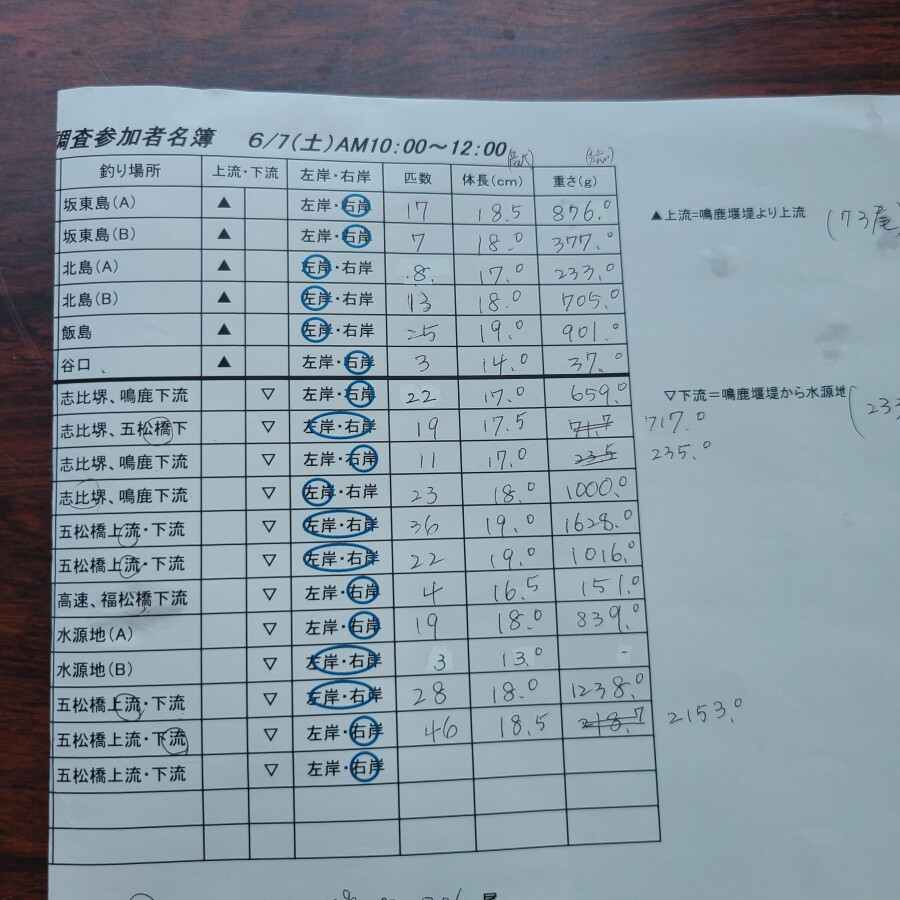 調査参加者名簿 6/7(土)AM10:00～12:00
釣り場所 上流・下流 左岸・右岸 匹数 体長(cm) (最大) 重さ(g)
坂東島(A) ▲ 左岸・右岸 17 18.5 876.0
坂東島(B) ▲ 左岸・右岸 7 18.0 377.0
北島(A) ▲ 左岸・右岸 8 17.0 233.0
北島(B) ▲ 左岸・右岸 13 18.0 705.0
飯島 ▲ 左岸・右岸 25 19.0 901.0
谷口 ▲ 左岸・右岸 3 14.0 37.0
▲上流=鳴鹿堰堤より上流 (73尾)
志比堺、鳴鹿下流 ▽ 左岸・右岸 22 17.0 659.0
志比堺、五松橋下 ▽ 左岸・右岸 19 17.5 71.7 717.0
志比堺、鳴鹿下流 ▽ 左岸・右岸 11 17.0 23.5 235.0
志比堺、鳴鹿下流 ▽ 左岸・右岸 23 18.0 1000.0
五松橋上流・下流 ▽ 左岸・右岸 36 19.0 1628.0
五松橋上流・下流 ▽ 左岸・右岸 22 19.0 1016.0
高速、福松橋下流 ▽ 左岸・右岸 4 16.5 151.0
水源地(A) ▽ 左岸・右岸 19 18.0 839.0
水源地(B) ▽ 左岸・右岸 3 13.0 -
五松橋上流・下流 ▽ 左岸・右岸 28 18.0 1238.0
五松橋上流・下流 ▽ 左岸・右岸 46 18.5 218.7 2153.0
五松橋上流・下流 ▽ 左岸・右岸
▽下流=鳴鹿堰堤から水源地 (233
尾